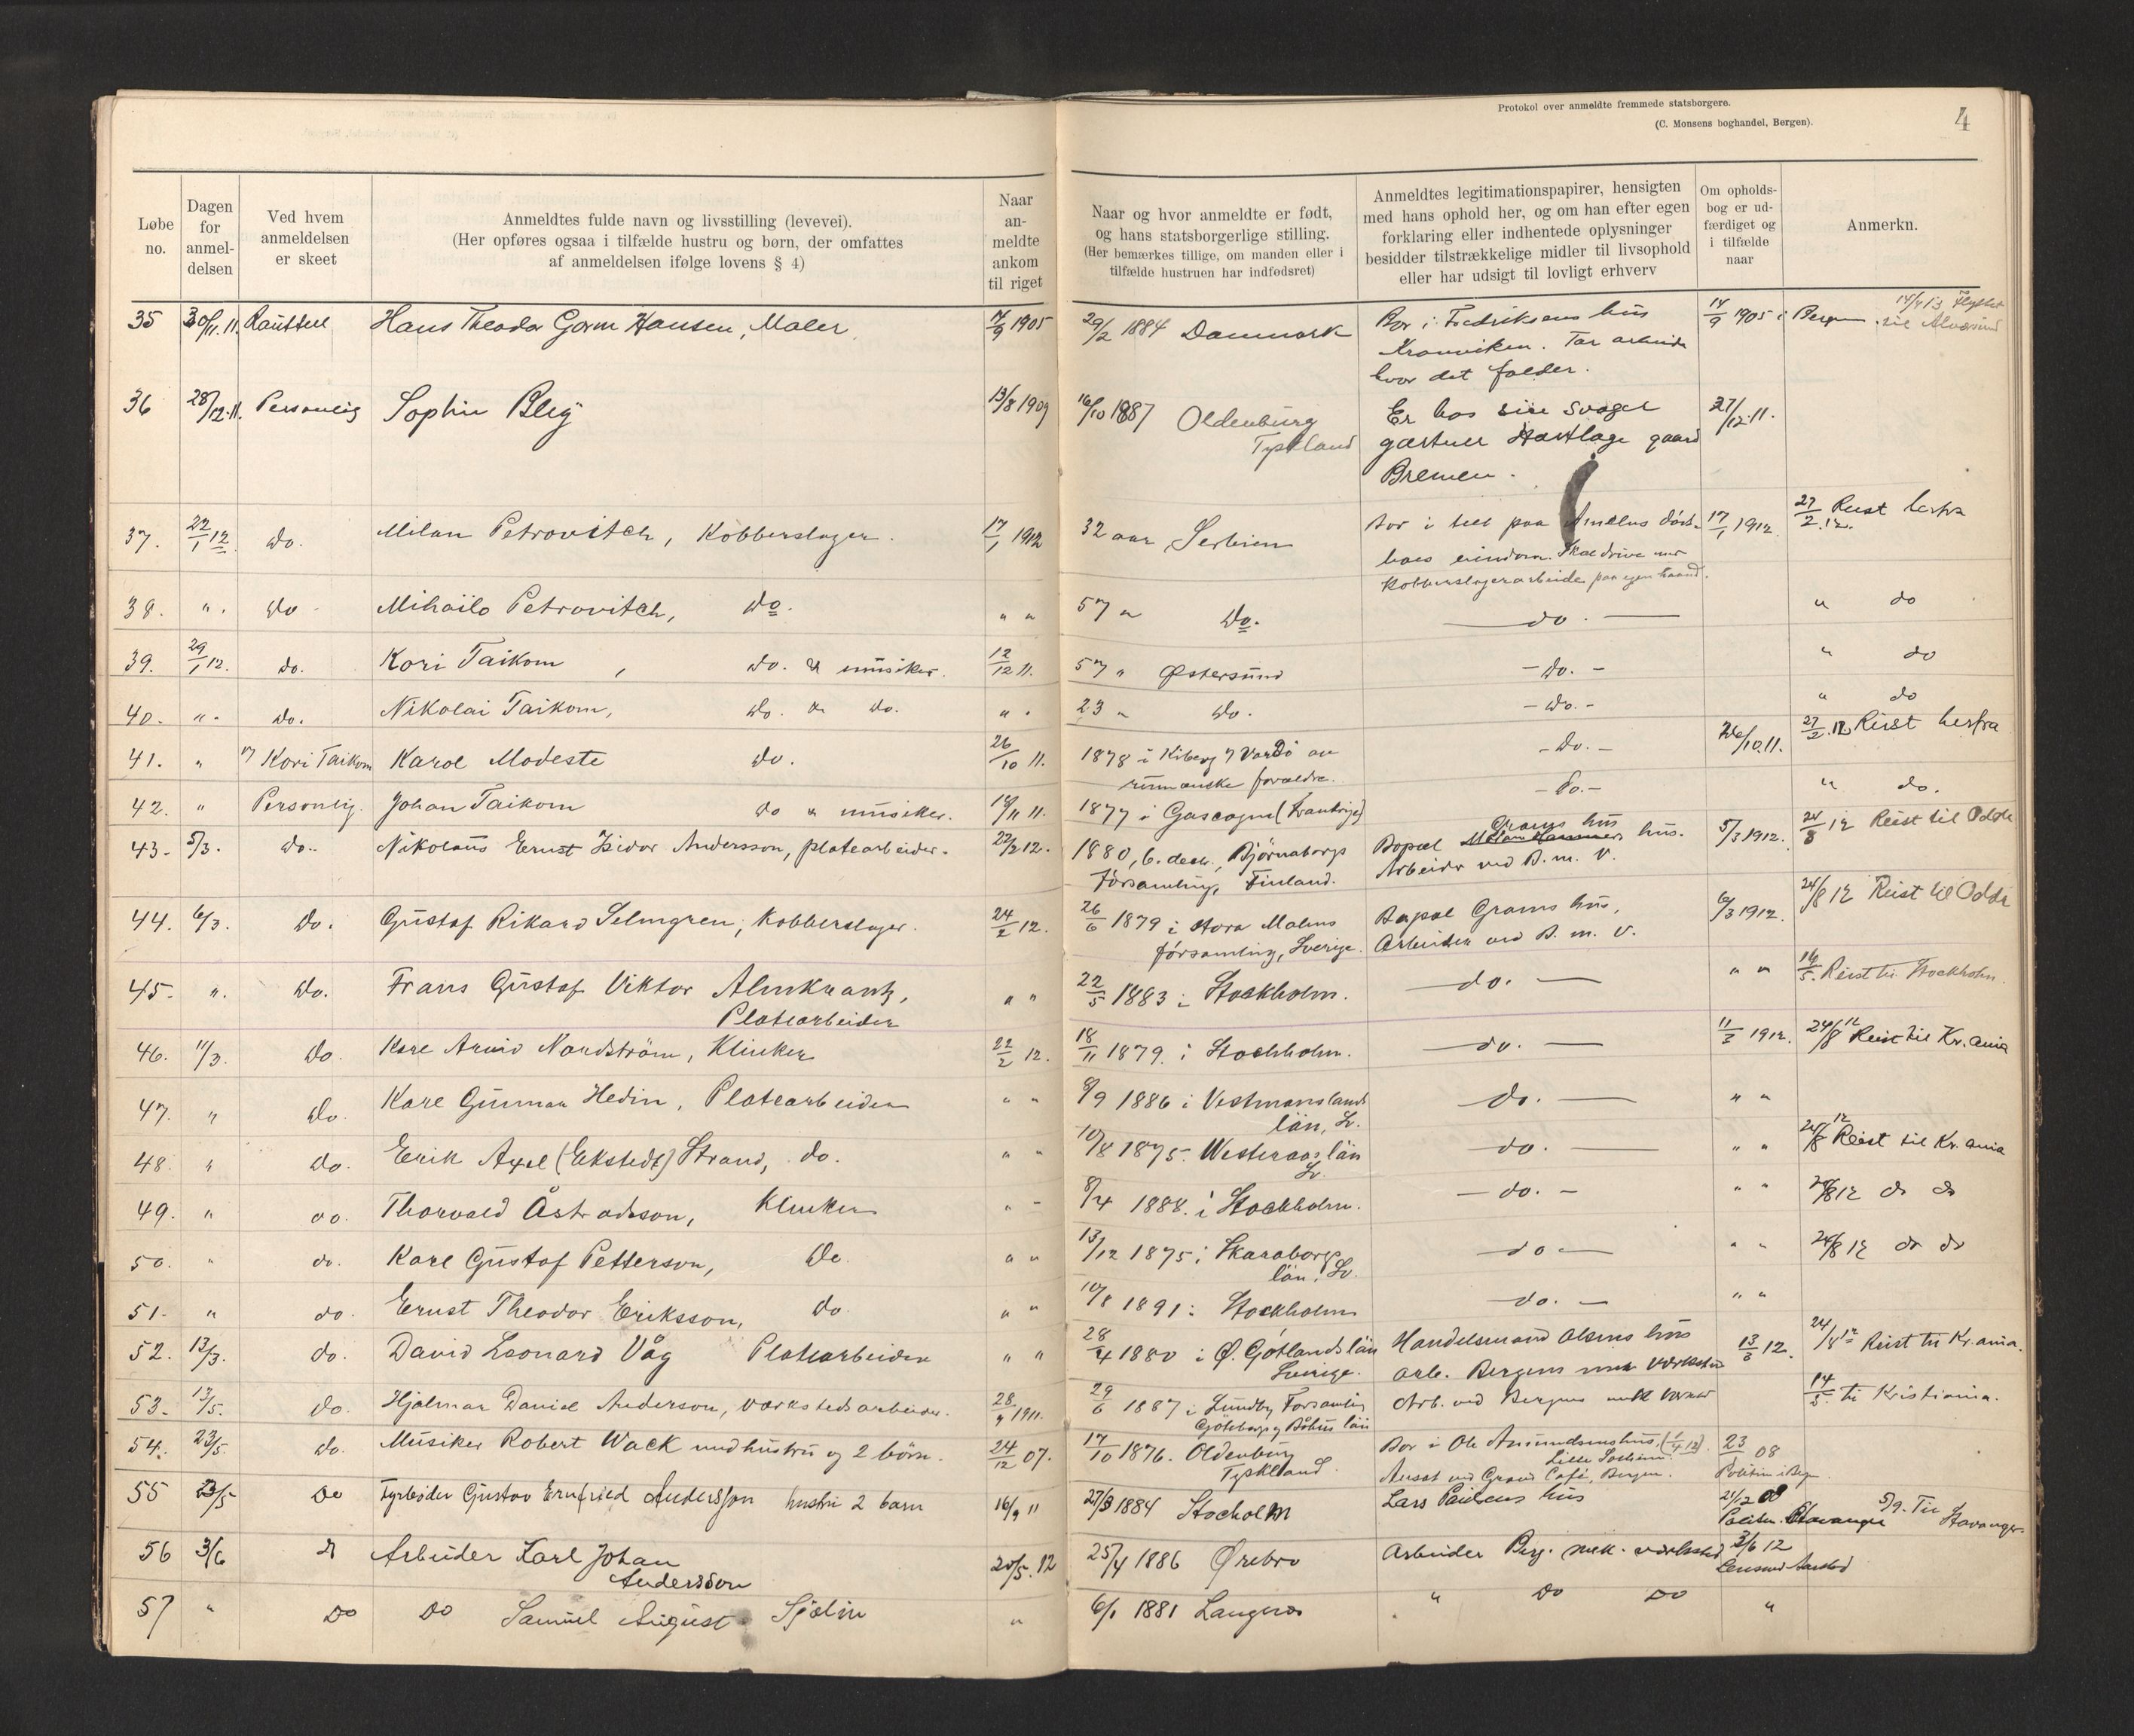 Protokol over anmeldte fremmede statsborgere.
(C. Monsens boghandel, Bergen).
4
Løbe no.
Dagen for anmel- delsen
Ved hvem anmeldelsen er skeet
Anmeldtes fulde navn og livsstilling (levevei).
(Her opføres ogsaa i tilfælde hustru og børn, der omfattes
af anmeldelsen ifølge lovens § 4)
Naar an- meldte ankom til riget
Naar og hvor anmeldte er født,
og hans statsborgerlige stilling.
(Her bemærkes tillige, om manden eller i
tilfælde hustruen har indfødsret)
Anmeldtes legitimationspapirer, hensigten
med hans ophold her, og om han efter egen
forklaring eller indhentede oplysninger
besidder tilstrækkelige midler til livsophold
eller har udsigt til lovligt erhverv
Om opholds- bog er ud- færdiget og i tilfælde naar
Anmerkn.
35 30/11.11. Hans Theodor Gorm Hansen, Maler 14/9 1905 29/2 1884 Danmark Bor i Fredriksens hus 14/9 1905 i Bergen
Kronviken. Tar arbeide
hvor det falder.
36 28/12.11. Personlig Sophie Bley 13/8 1909 16/10 1887 Oldenburg Er hos sin svoger 27/12.11.
Tyskland gartner Hartlage gaard
Bremen.
37. 22/1 12. do. Milan Petrovitch, Kobberslager. 17/1 1912 32 aar Serbien Bor i telt paa 17/1 1912. 27/2.12. Reist herfra
Skal drive med
Kobberslagerarbeide paa egen haand.
38. " do Mihailo Petrovitch, do. " " 57 " do. do. " do
39. 29/1 12. do. Kori Taikom, do. & musiker. 12/12 11. 57 " Østersund - do. - " do
40. " do. Nikolai Taikom, do. & do. " " 23 " do. - do. - " do
41. " Kori Taikom Karol Modeste do. 26/10 11. 1878 i Kiberg Vardö av - do. - 26/10.11. 27/2.12 Reist herfra
rumænske forældre.
42. " Personlig. Johan Taikom do & musiker. 18/11 11. 1877 i Gascogne (Frankrige) - do. - " do.
43. 5/3. do. Nikolaus Ernst Isidor Andersson, platearbeider. 22/2 12. 1880, 6. decb., Björneborgs Bopæl Grams hus 5/3 1912. 24/8 12 Reist til Odda
församling, Finland. Arbeider ved B. m. V.
44. 6/3. do. Gustaf Rikard Selmgren, Kobberslager. 24/2 12. 26/6 1879 i Stora Malms Bopæl Grams hus, 6/3 1912. 24/8 12 Reist til Odda
församling, Sverige. Arbeider ved B. m. V.
45. " do. Frans Gustaf Viktor Almkrantz, " " 22/5 1883 i Stockholm. do. " " 16/5. Reist til Stockholm.
Platearbeider
46. 11/3. do. Karl Arvid Nordström, Klinker 22/2 12. 18/11 1879. i Stockholm. do. 11/3 1912. 24/8 12 Reist til Kr.ania
47. " do. Karl Gunnar Hedin, Platearbeider " " 8/9 1886 i Vestmanlands do. " "
län, Sv.
48. " do. Erik Axel (Ekstedt) Strand, do. " " 10/8 1875. Westeraas län do. " " 24/8 12 Reist til Kr.ania
Sv.
49. " do. Thorvald Åstradsson, Klinker " " 8/4 1888. i Stockholm. - do. - " " 24/8 12 do do
50. " do. Karl Gustaf Petterson, do. " " 13/12 1875 i Skaraborgs do " " 24/8 12 do do
län, Sv.
51. " do. Ernst Theodor Eriksson, do. " " 10/8 1891 i Stockholm do. " "
52. 13/3. do. David Leonard Våg Platearbeider " " 28/4 1880 i Ø. Götlands län Handelsmand Olsens hus 13/3 12. 24/8 12 Reist til Kr.ania.
Sverige. arb. Bergens mek Værksted
53. 13/5. do. Hjalmar Daniel Anderson, værkstedsarbeider. 28/4 1911. 29/6 1887 i Lundby Forsamling Arb. ved Bergens mek 14/5. til Kristiania.
Göteborg og Bohus län
54. 23/5. do. Musiker Robert Wack med hustru og 2 børn. 24/12 07. 17/10 1876. Oldenburg Bor i Ole Amundsens hus, 23 08
Tyskland. Ansat ved Grand Café, Bergen. Politiet i Bergen.
55 23/5 Do Fyrbøder Gustav Ernfried Andersson hustru 2 barn 16/9 11 27/3 1884 Stocholm Lars Paulsens hus 21/12 08 5/9. Til Stavanger.
Stavanger
56 3/6 Arbeider Karl Johan 20/5.12 25/4 1886 Ørebro Arbeider Berg. mek. værksted 3/6 12
Andersson Lensmand Aarstad
57 " Do Do Samuel August Sjölin " 6/1 1881 " Do Do "